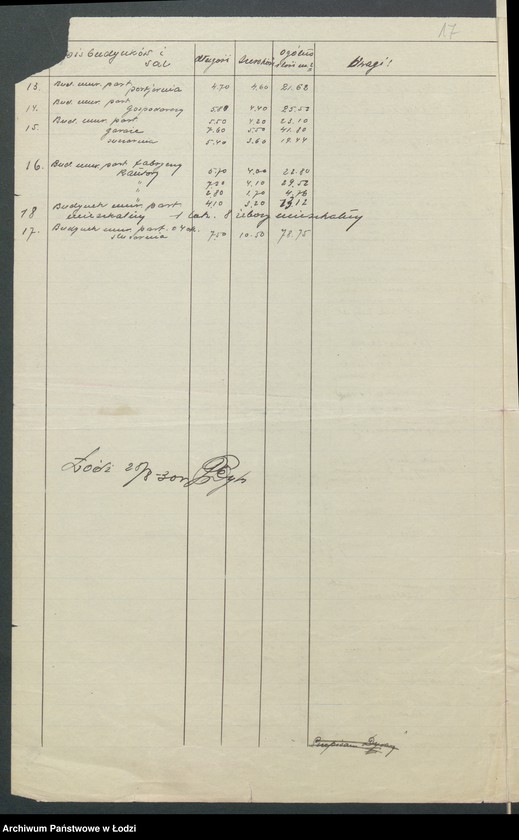 17
pis budynków i sal długość szerokość ogólna Uwagi!
13. Bud. mur. part.
portjernia 4.70 4.60 21.62
14. Bud. mur. part
gospodarczy 5.80 4.40 25.52
15. Bud. mur. part 5.50 4.20 23.10
garaże 7.60 5.50 41.80
5.40 3.60 19.44
16. Bud. mur. part fabryczny
Kantory 5.70 4.00 22.80
" 7.20 4.10 29.52
" 2.80 1.70 4.76
" 4.10 3.20 13.12
18 Budynek mur. part
mieszkalny 1 lok. 8 izbowy mieszkalny
17. Budynek mur. part.
7.50 10.50 78.75
Łódź 28/8-30r
Archiwum Państwowe w Łodzi